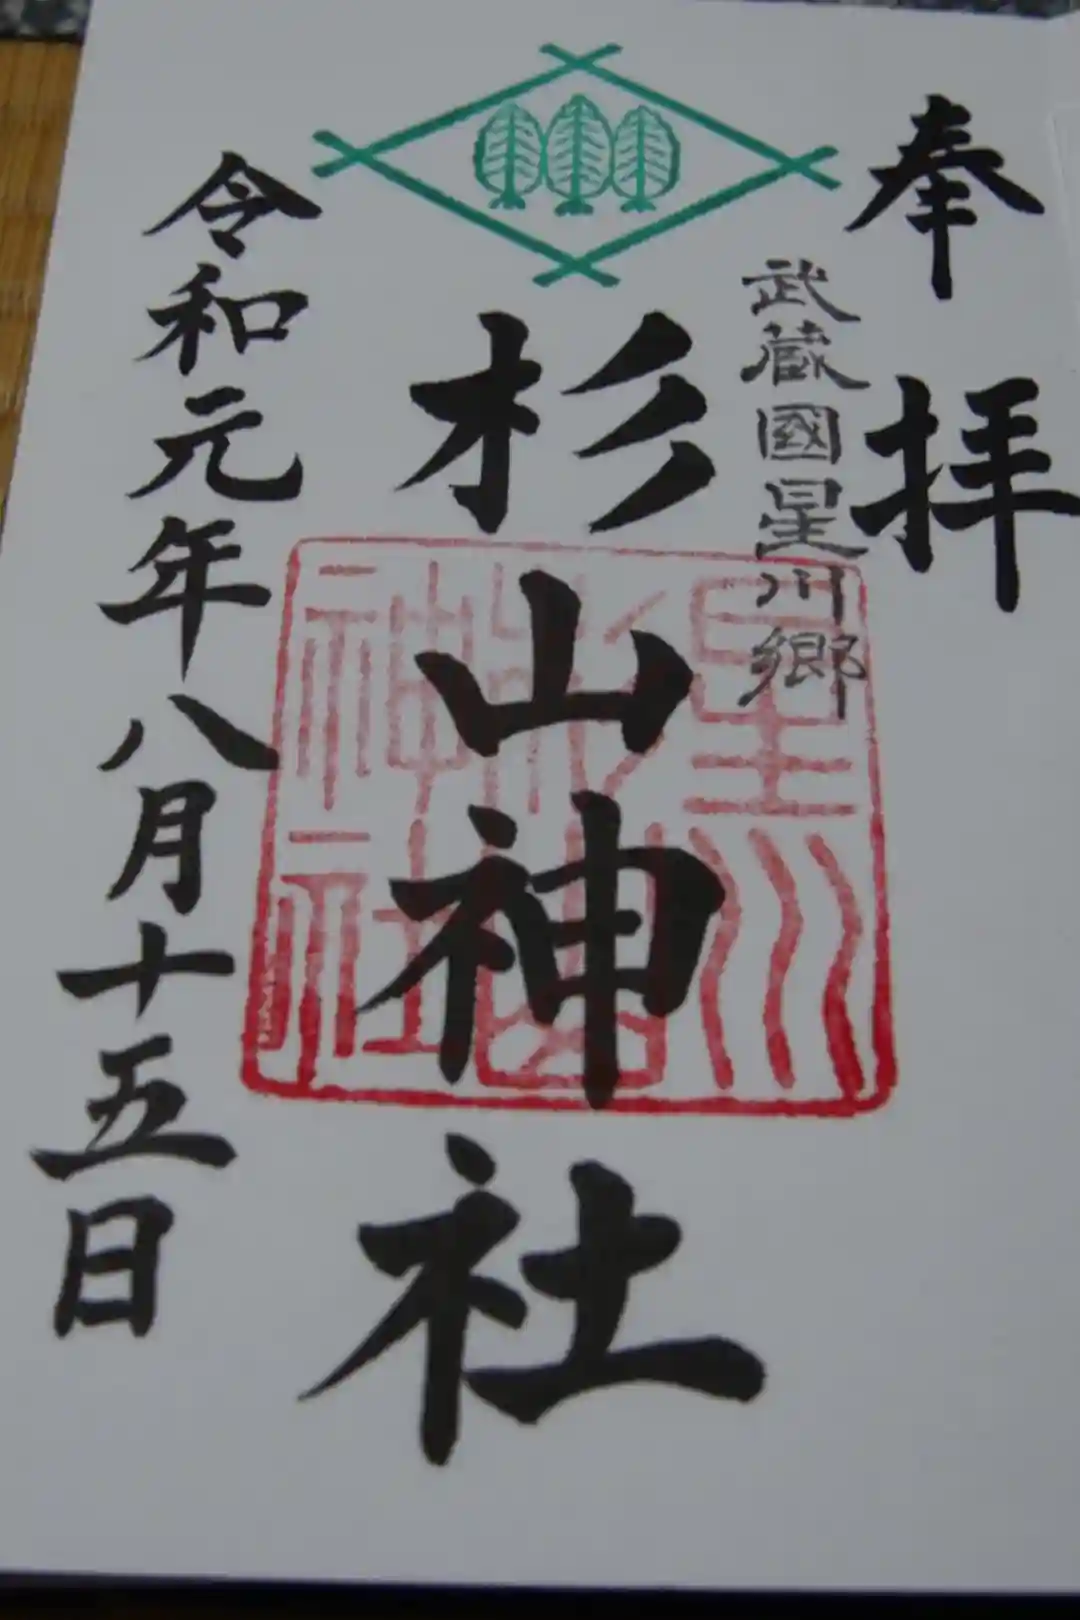 奉拝
武蔵國星川郷
杉山神社
星川
杉山
神社
令和元年八月十五日